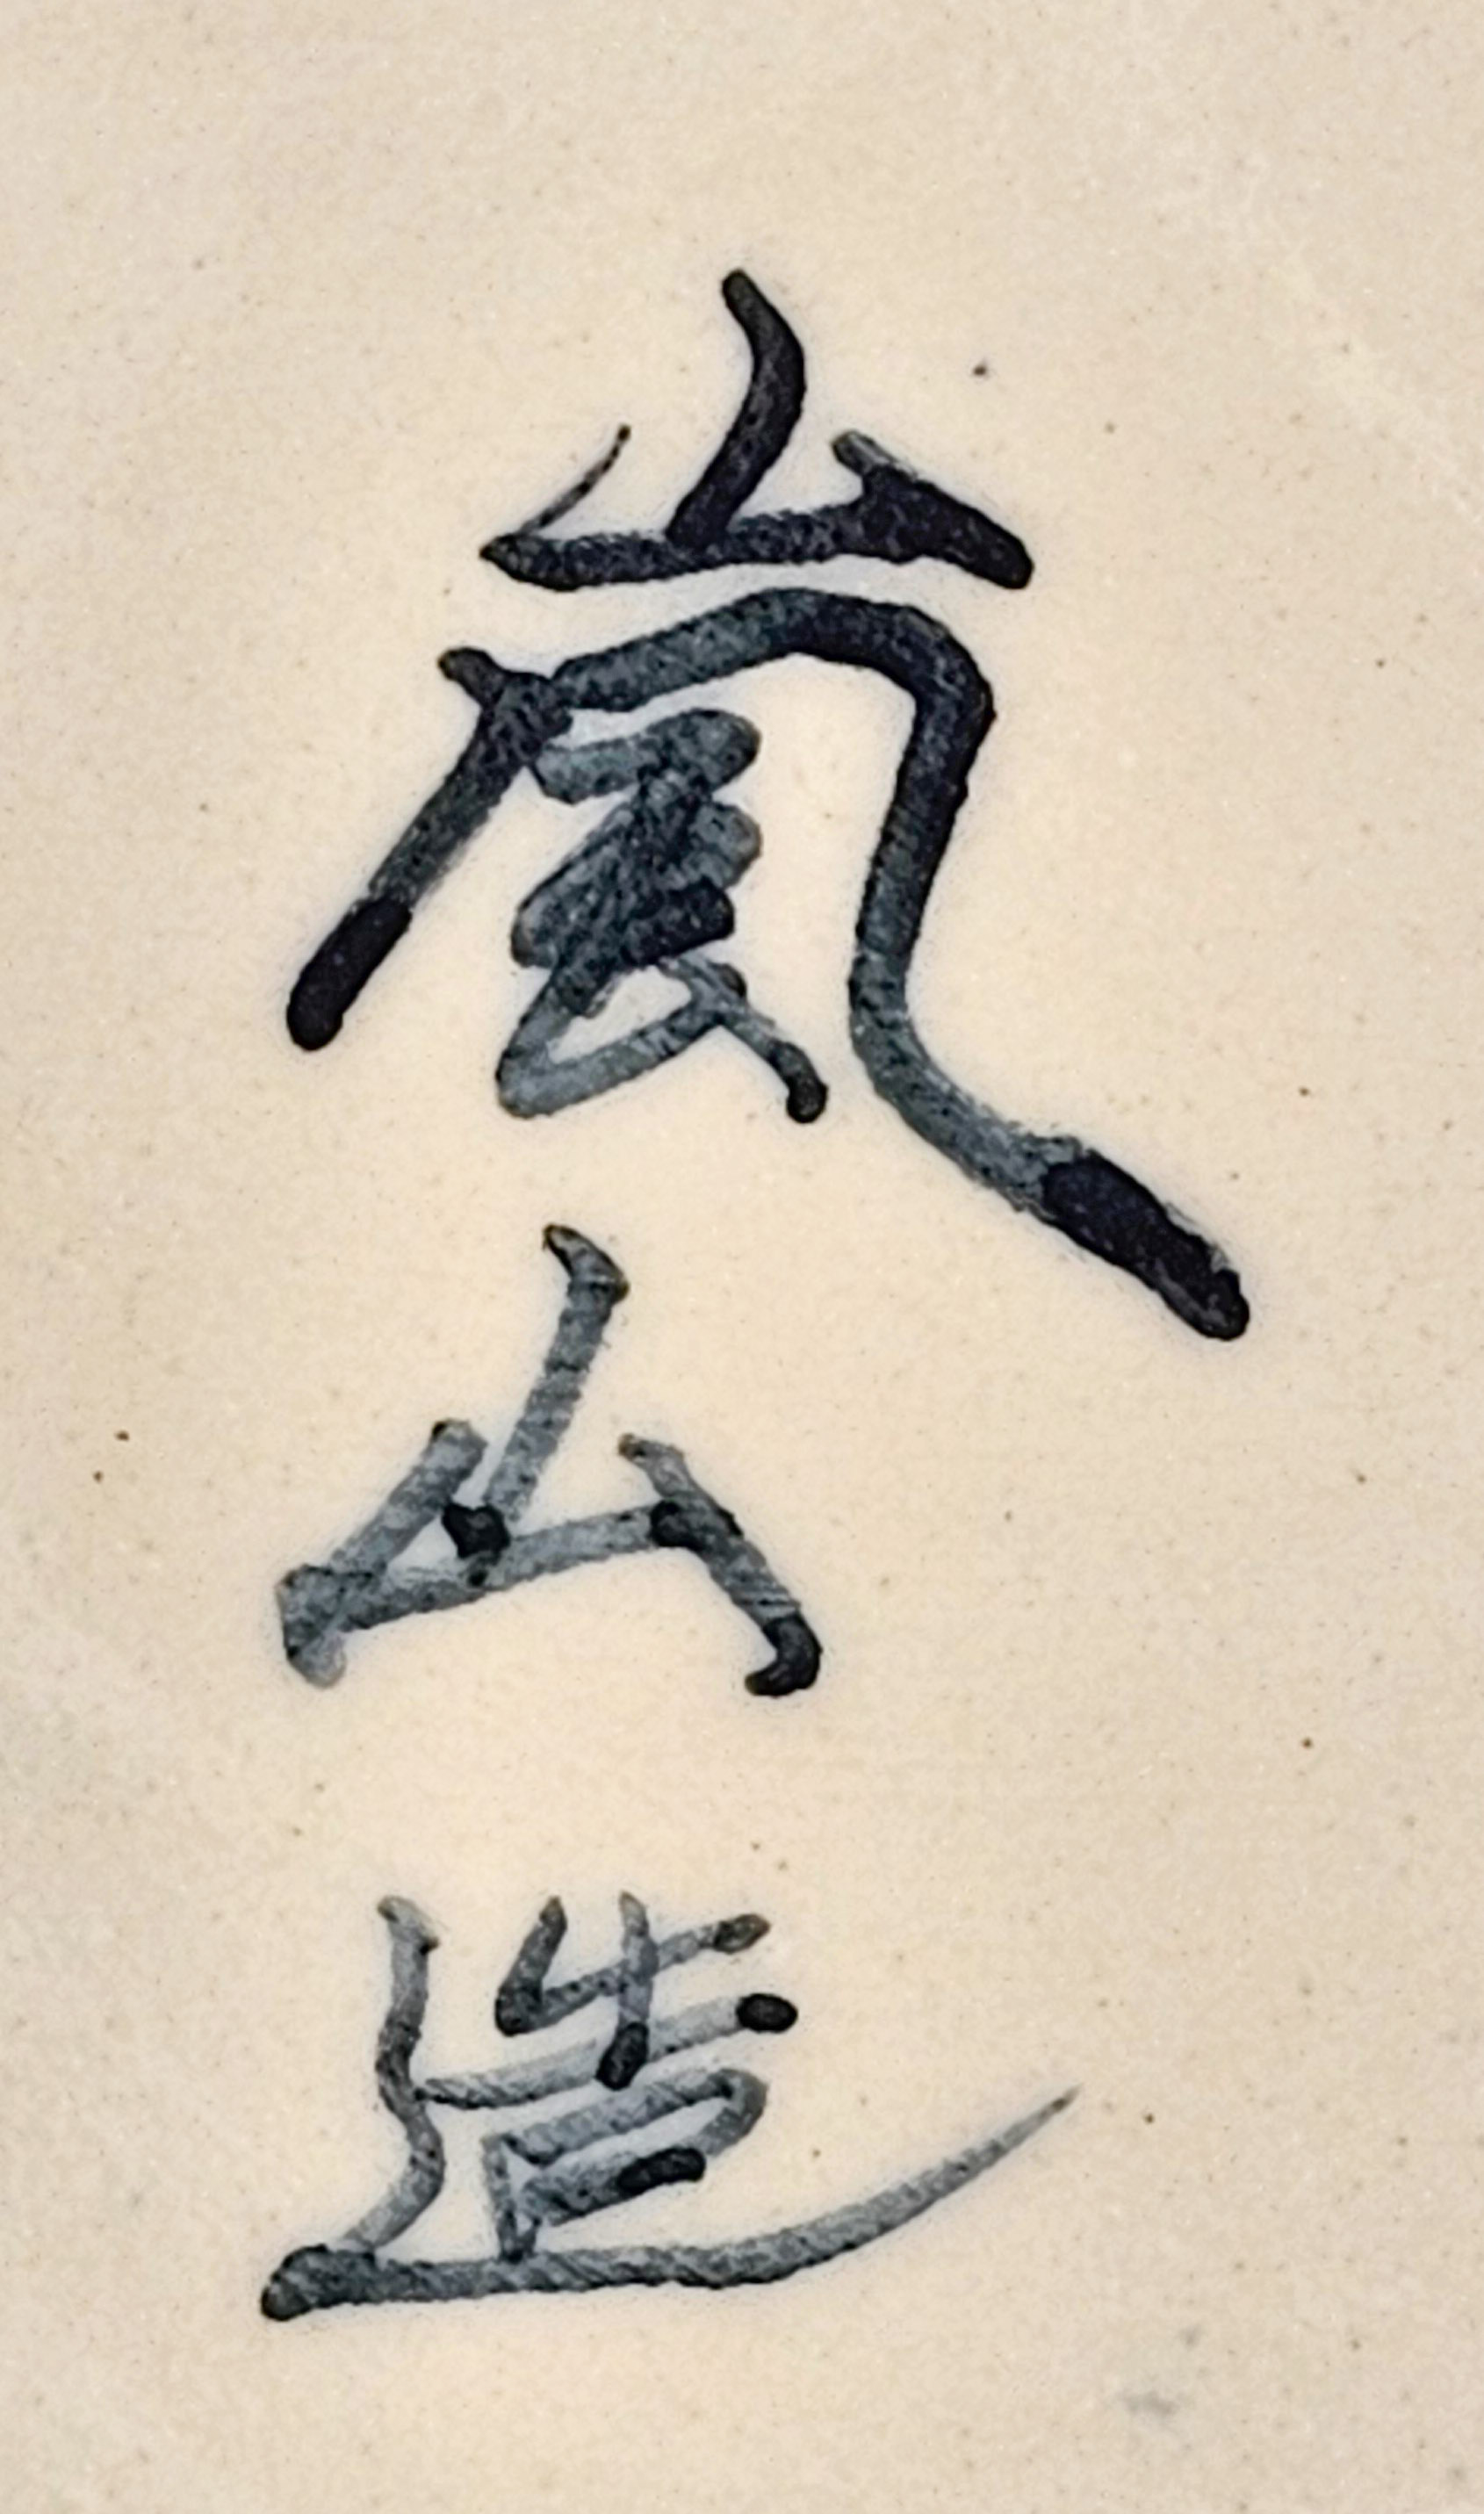 嵐山造